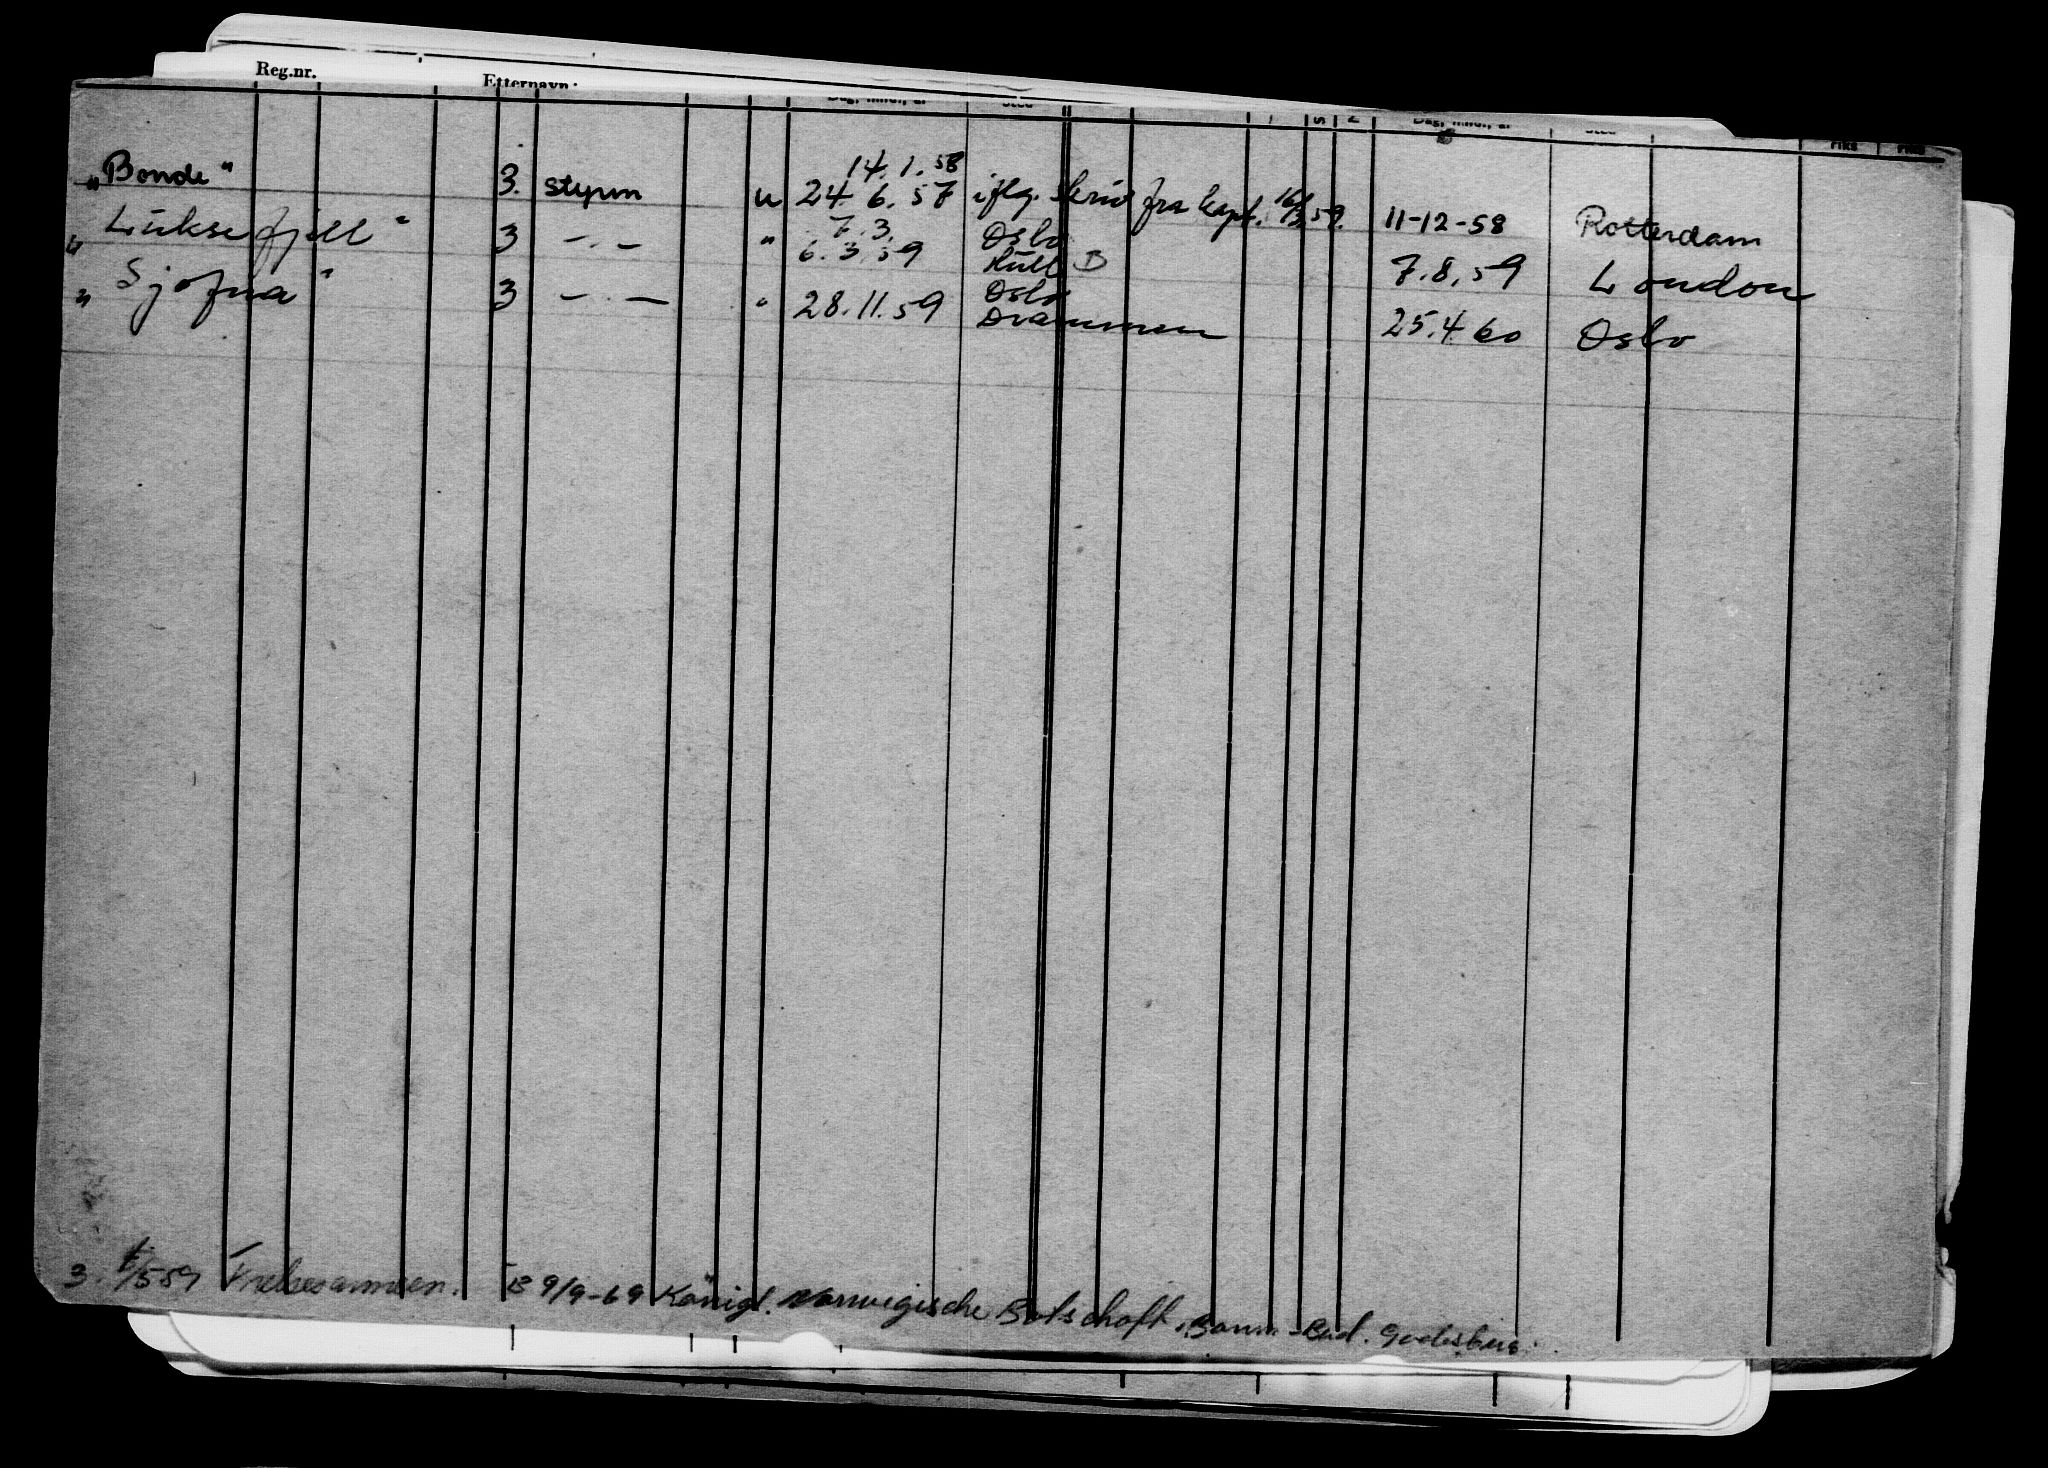 Reg.nr. Etternavn:
Dag, mnd., år Sted S N Dag, mnd., år Sted
14.1.58
„Bonde" 3. styrm u 24 6. 57 iflg. skriv fra kapt. 16/3 59. 11-12-58 Rotterdam
7.3. Oslo
„Luksefjell" 3 —.— " 6.3.59 Hull B 7.8.59 London
Oslo
„Sjofna" 3 —.— " 28.11.59 Drammen 25.4 60 Oslo
3. 6/5 59 Frelsesarmeen. B 9/9-69 Königl. Norwegische Botschaft, Bonn-Bad. Godesberg.